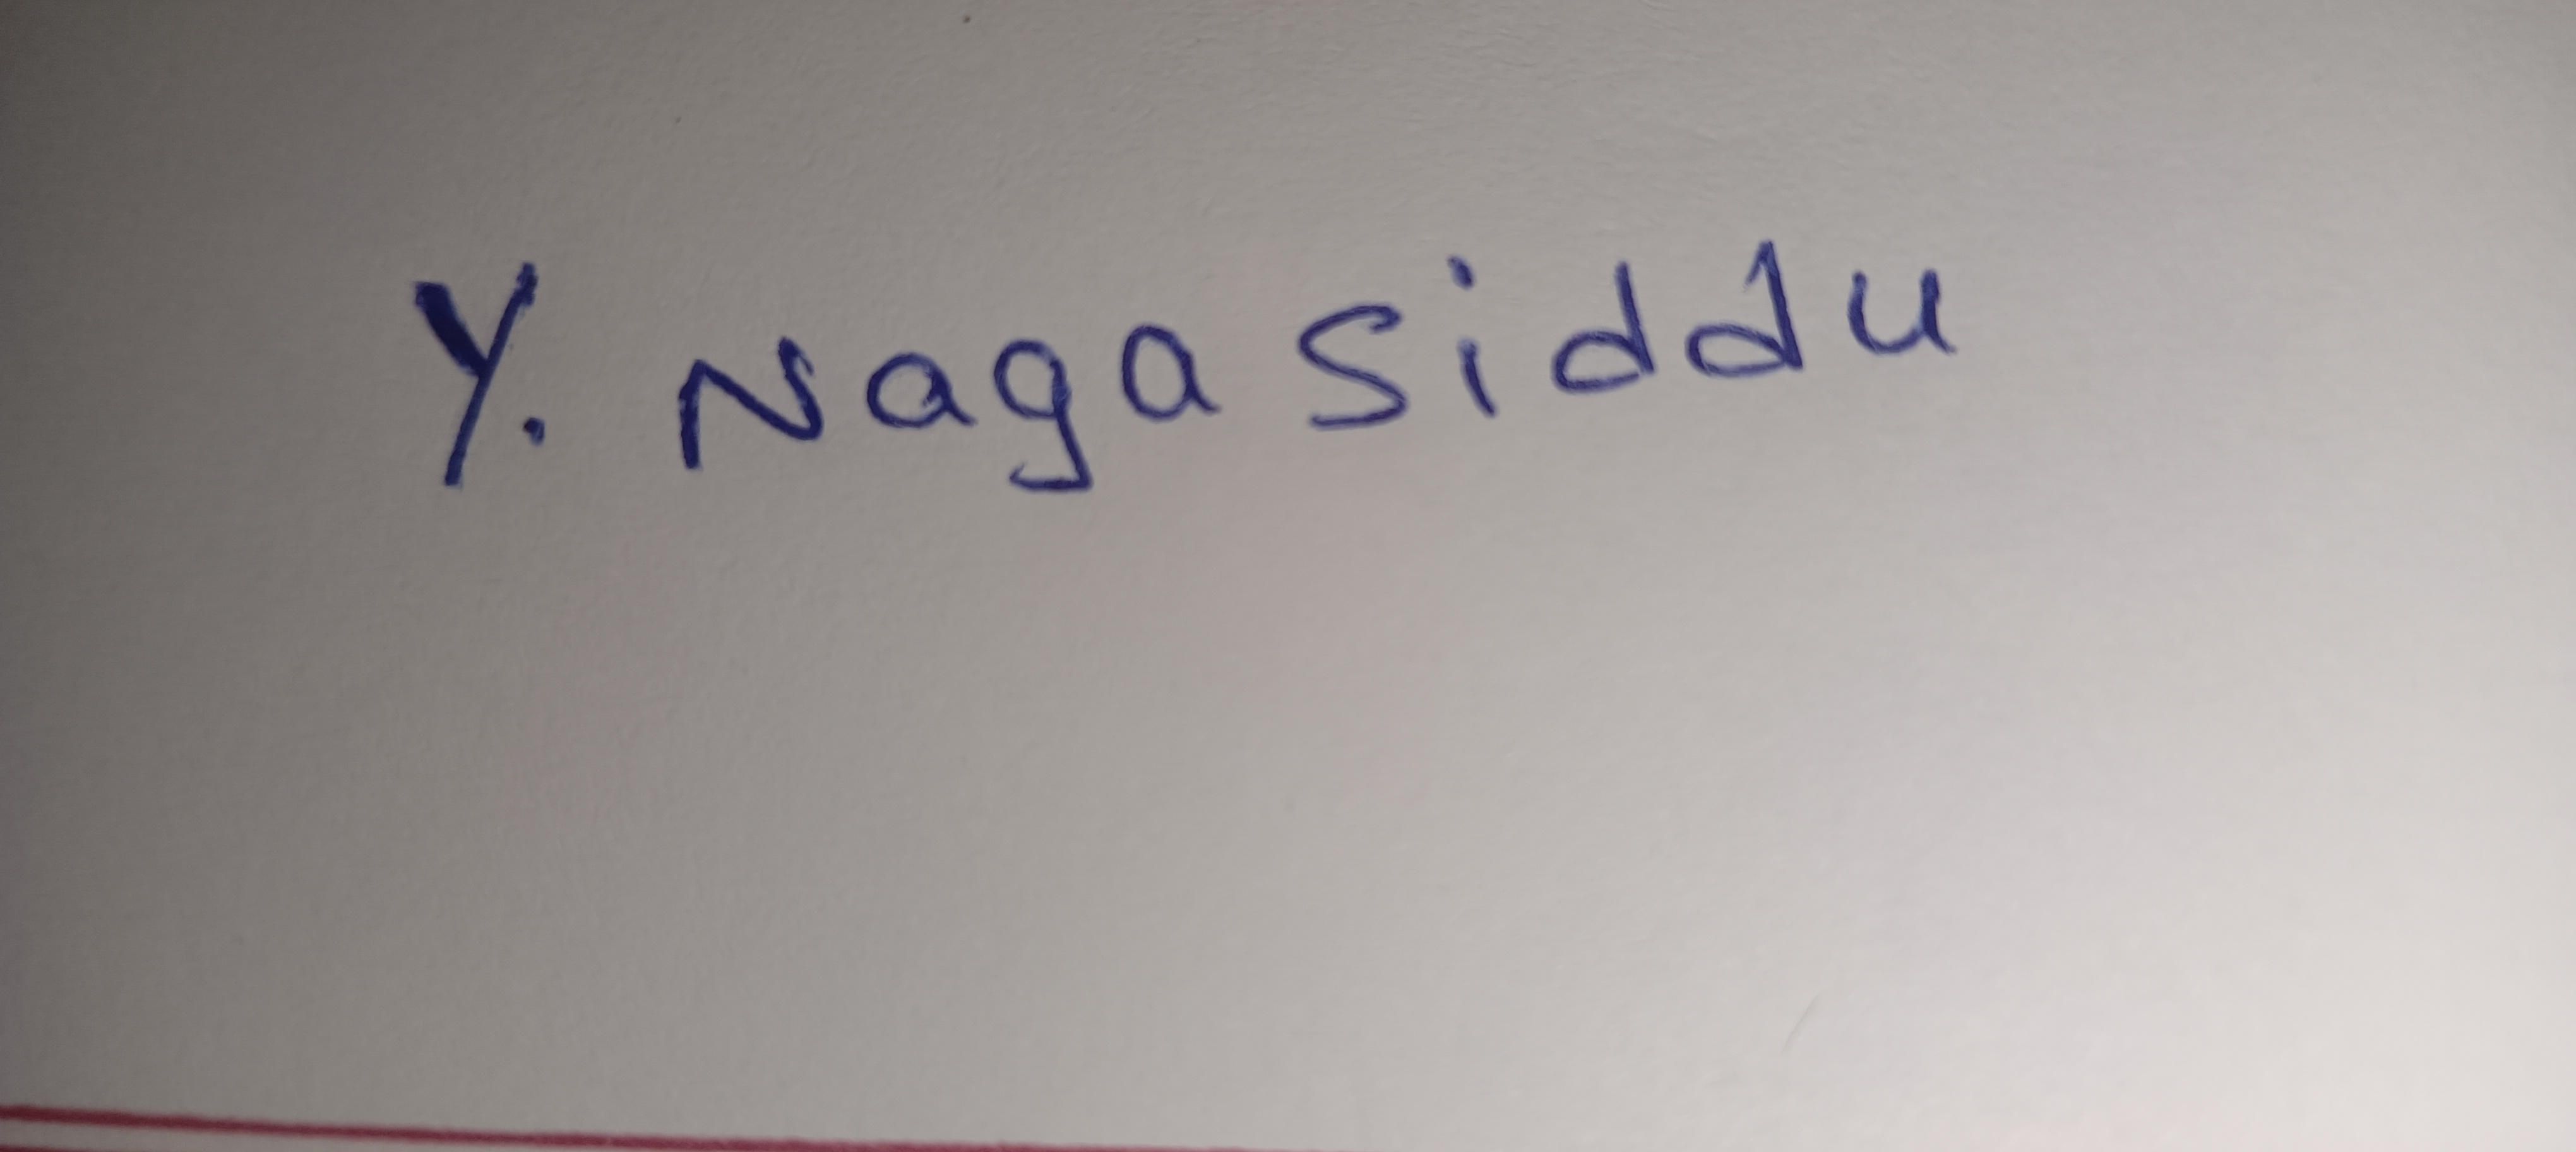 Y. Naga Siddu